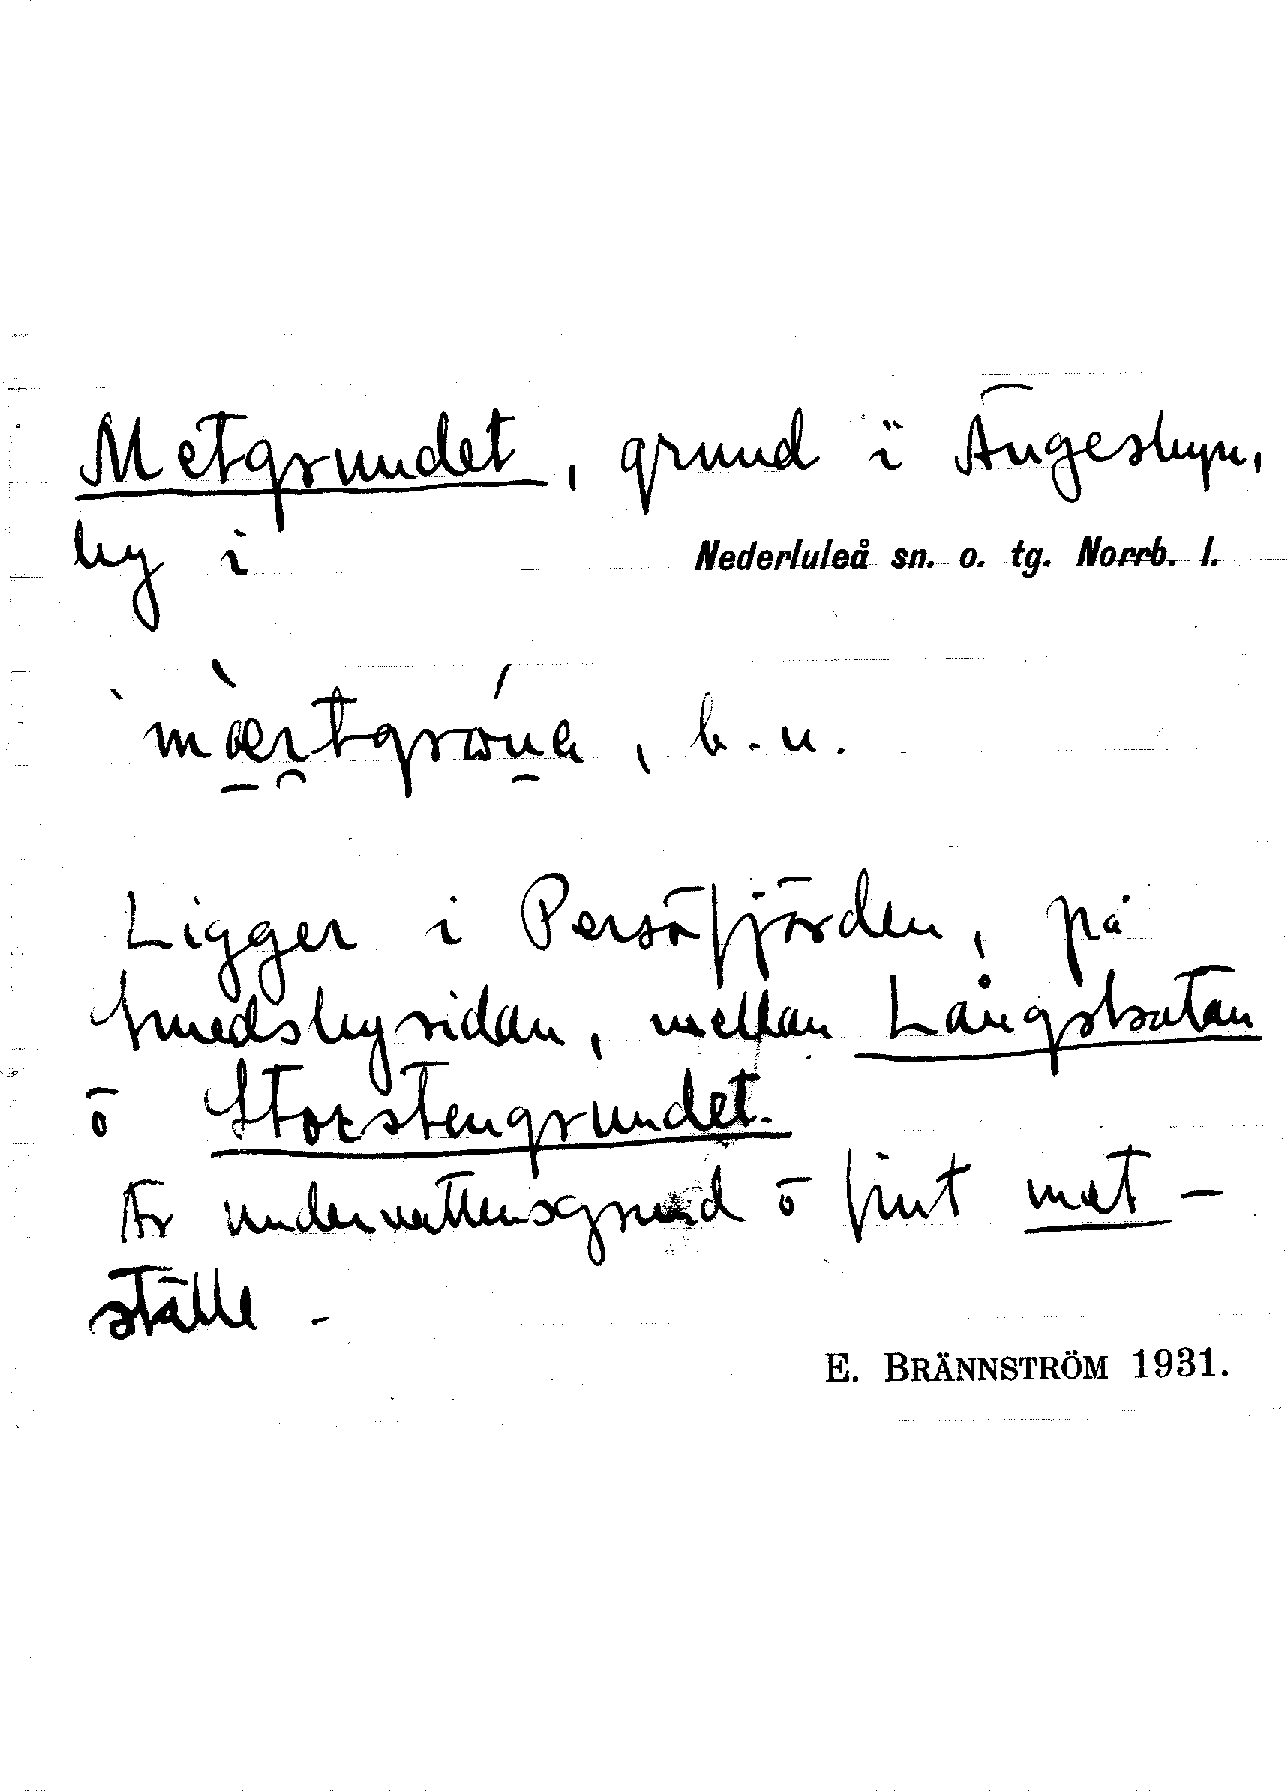 Metgrundet, grund i Ängesbyn,
by i Nederluleå sn. o. tg. Norrb. l.
b. u.
Ligger i Persöfjärden, på
Smedsbysidan, mellan
o Storstengrundet.
Är undervattensgrund o fint met-
ställe.
E. BRÄNNSTRÖM 1931.